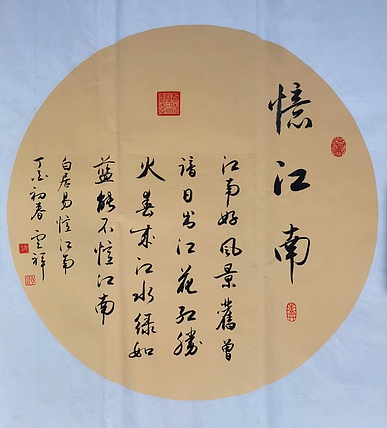 憶江南
江南好風景舊曾
諳日出江花紅勝
火春來江水綠如
藍能不憶江南
白居易憶江南
丁酉初春 雲祥